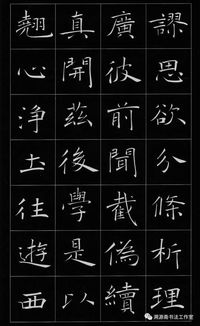 謬思欲分條析理
廣彼前聞截偽續
真開茲後學是以
翹心淨土往遊西
溯源斋书法工作室